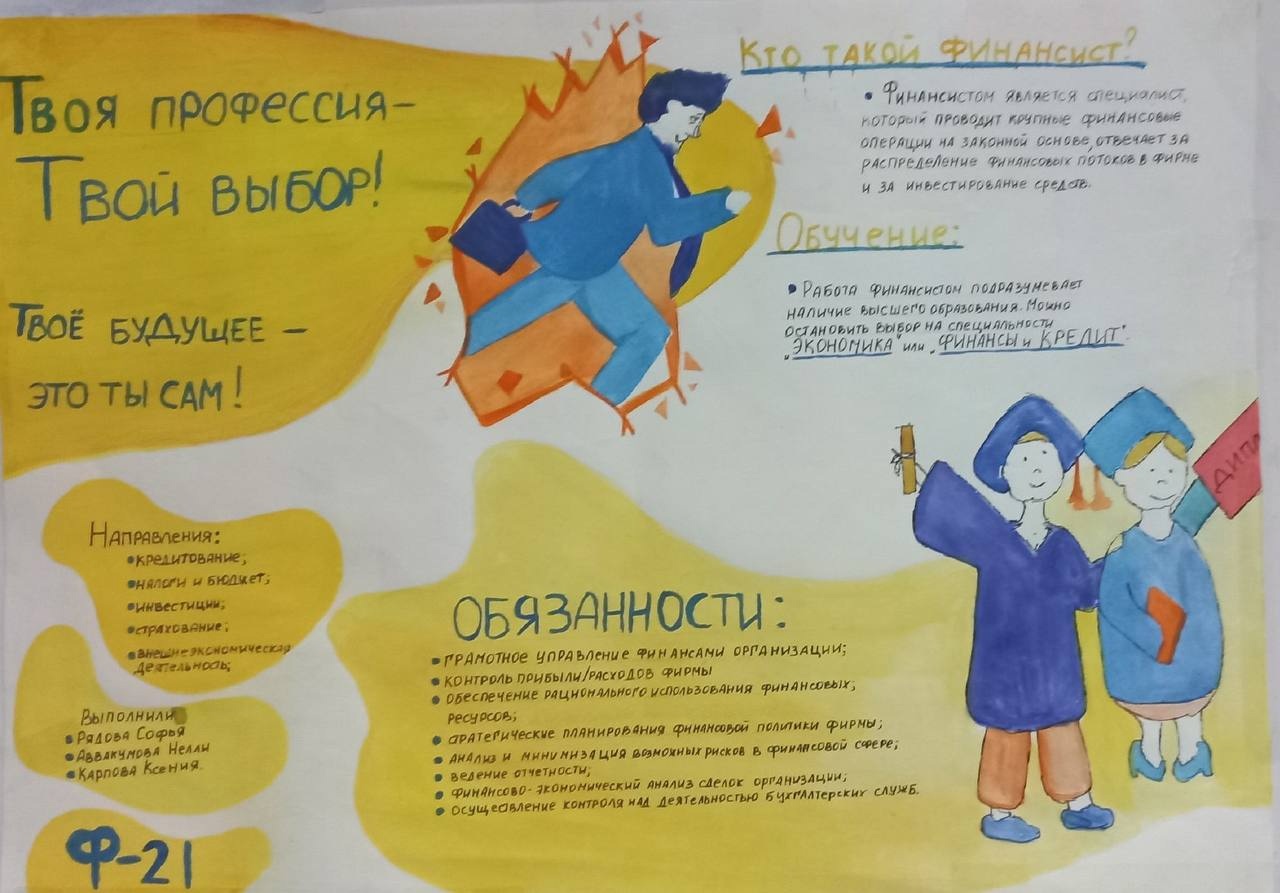 Твоя профессия–
Твой выбор!
Твоё будущее –
это ты сам!
Кто такой финансист?
• Финансистом является специалист,
который проводит крупные финансовые
операции на законной основе, отвечает за
распределение финансовых потоков в фирме
и за инвестирование средств.
Обучение:
• Работа финансистом подразумевает
наличие высшего образования. Можно
остановить выбор на специальности
„Экономика" или „Финансы и кредит".
ДИПЛ
Направления:
• кредитование;
• налоги и бюджет;
• инвестиции;
• страхование;
• внешнеэкономическая
деятельность;
Обязанности:
• грамотное управление финансами организации;
• контроль прибыли/расходов фирмы
• обеспечение рационального использования финансовых;
ресурсов;
• стратегические планирования финансовой политики фирмы;
• анализ и минимизация возможных рисков в финансовой сфере;
• ведение отчетности;
• финансово-экономический анализ сделок организации;
• осуществление контроля над деятельностью бухгалтерских служб.
Выполнили
• Рядова Софья
• Аввакумова Нелли
• Карпова Ксения.
Ф-21